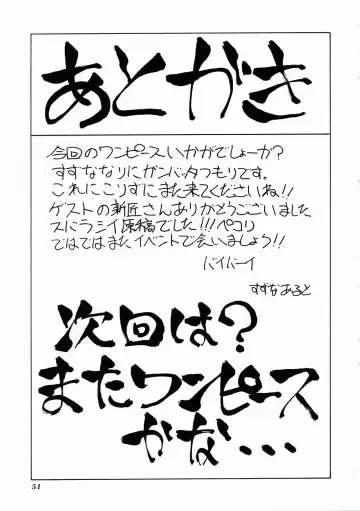 あとがき
今回のワンピースいかがでしょーか?
すずななりにガンバッタつもりです。
これにこりずにまた来てくださいね!!
ゲストの新匠さんありがとうございました
スバラシイ原稿でした!!!ペコリ
ではではまたイベントで会いましょう!!
バイバーイ
すずなあると
次回は?
またワンピース
かな...
51